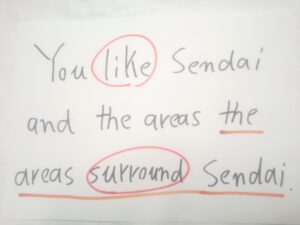 You like Sendai
and the areas the
areas surround Sendai.